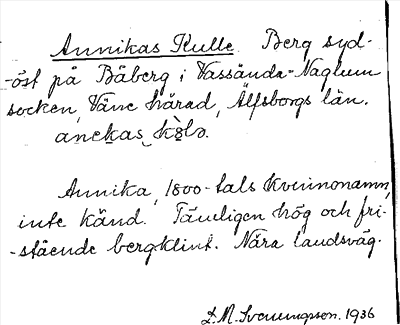 Annikas Kulle. Berg syd-
-öst på Båberg i Vassända-Naglum
socken, Väne härad, Älfsborgs län.
anekas
Annika, 1800-tals kvinnonamn,
inte känd. Tämligen hög och fri-
-stående bergklint. Nära landsväg.
D.M. Svenungsson. 1936